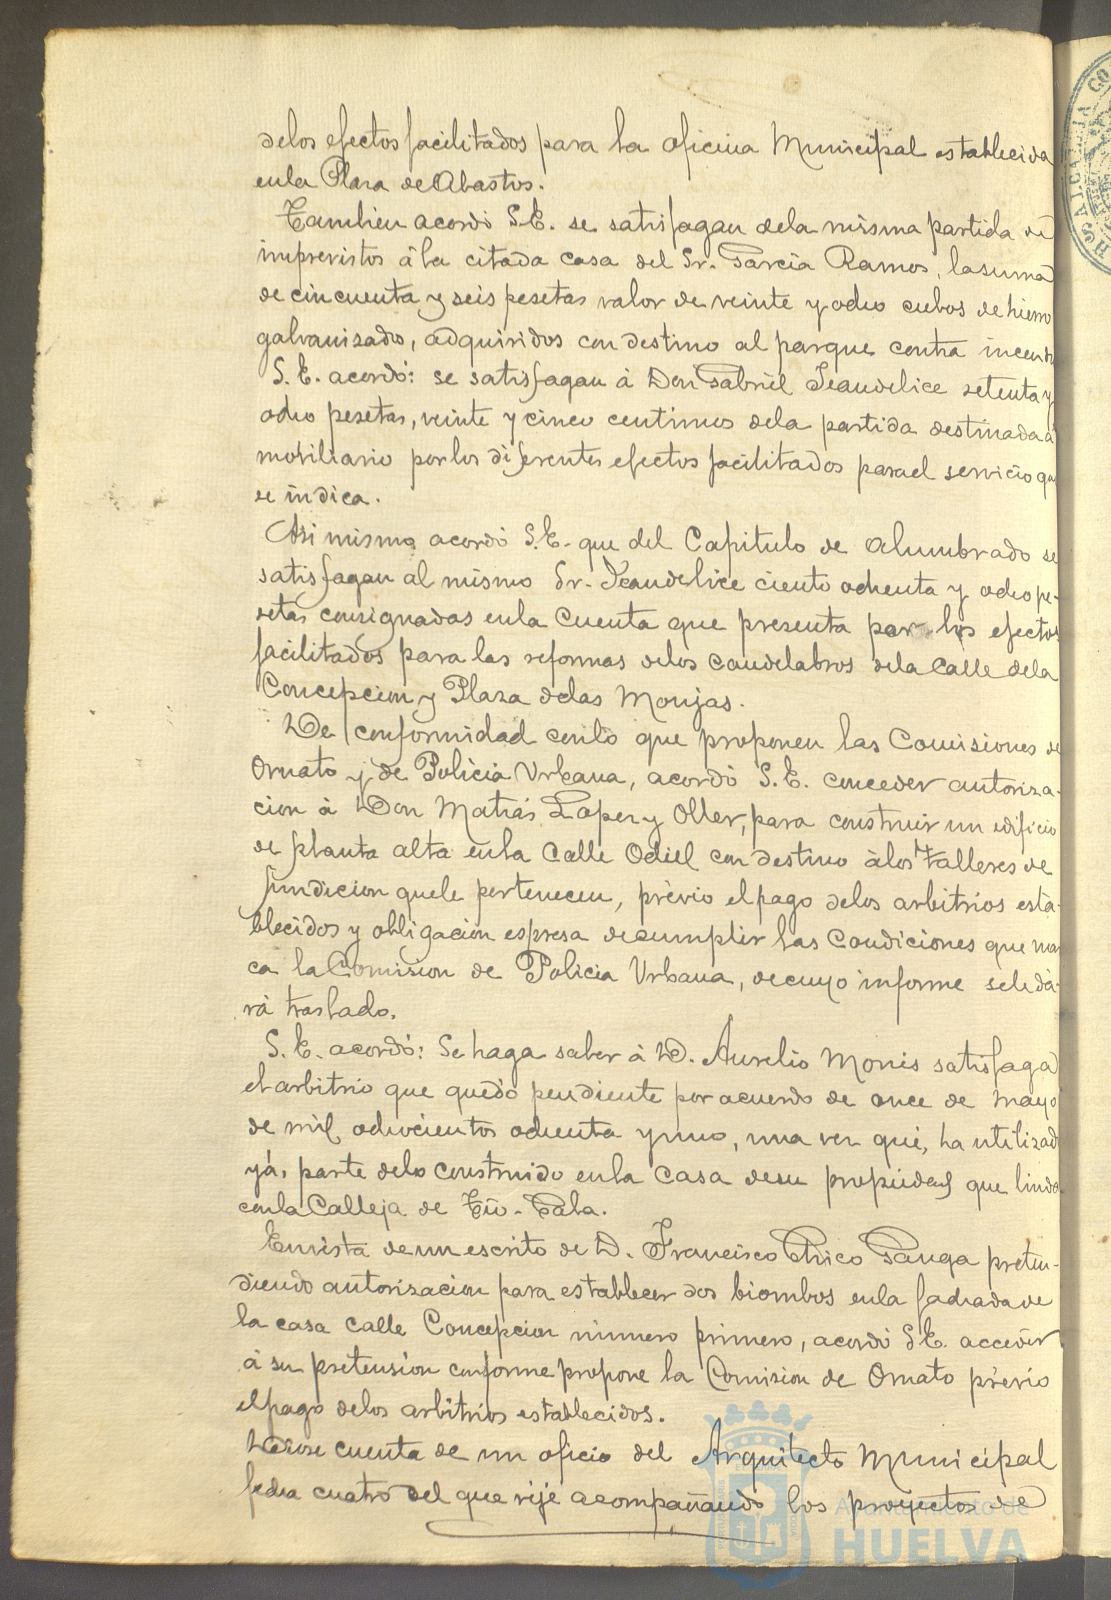 delos efectos facilitados para la oficina Municipal establecida
enla Plaza de Abastos.
Tambien acordó S.E. se satisfagan dela misma partida de
imprevistos á la citada casa del Sr. Garcia Ramos, la suma
de cincuenta y seis pesetas valor de veinte y ocho cubos de hierro
galvanizado, adquiridos con destino al parque contra incendi
S. E. acordó: se satisfagan á Don Gabriel Jeandelice setenta y
ocho pesetas, veinte y cinco centimos dela partida destinada á
mobiliario por los diferentes efectos facilitados para el servicio que
se indica.
Asi mismo acordó S.E. que del Capitulo de Alumbrado se
satisfagan al mismo Sr. Jeandelice ciento ochenta y ocho pe-
setas consignadas enla cuenta que presenta por los efectos
facilitados para las reformas delos candelabros dela Calle dela
Concepcion y Plaza delas Monjas.
De conformidad conlo que proponen las Comisiones de
Ornato y de Policia Urbana, acordó S.E. conceder autoriza-
cion á Don Matias Lopez y Oller, para construir un edificio
de planta alta enla Calle Odiel con destino álos Talleres de
fundicion quele pertenecen, prévio el pago delos arbitrios esta-
blecidos y obligacion espresa de cumplir las condiciones que mar
ca la Comision de Policia Urbana, de cuyo informe sele da-
rá traslado.
S. E. acordó: Se haga saber á D. Aurelio Monis satisfaga
el arbitrio que quedó pendiente por acuerdo de once de Mayo
de mil ochocientos ochenta y uno, una vez que, ha utilizad
yá, parte delo construido enla casa desu propiedad que linda
conla Calleja de Tio-Gala.
Envista de un escrito de D. Francisco Chico Ganga preten-
diendo autorizacion para establecer dos biombos enla fachada de
la casa calle Concepcion número primero, acordó S.E. acceder
á su pretension conforme propone la Comision de Ornato prévio
el pago delos arbitrios establecidos.
Diose cuenta de un oficio del Arquitecto Municipal
fecha cuatro del que rije acompañando los proyectos de
Ayuntamiento de
HUELVA